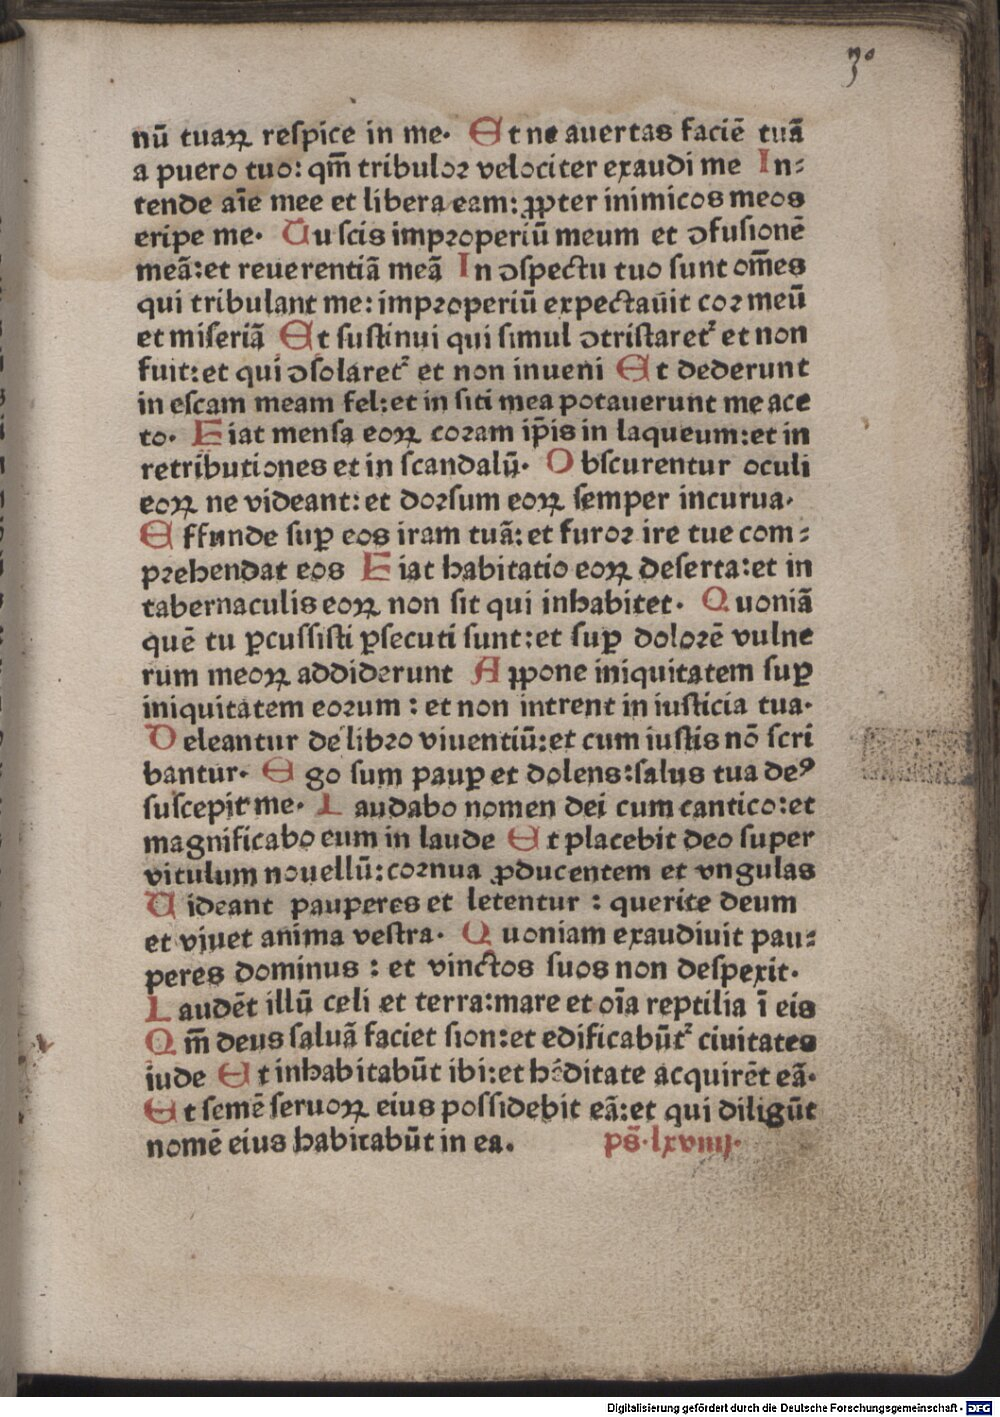 30
nū tuaꝝ respice in me. Et ne auertas faciē tuā
a puero tuo: qm̄ tribulor velociter exaudi me In-
tende aīe mee et libera eam: ꝓpter inimicos meos
eripe me. Tu scis improperiū meum et ↄfusionē
meā: et reuerentiā meā In ↄspectu tuo sunt om̄es
qui tribulant me: improperiū expectauit cor meū
et miseriā Et sustinui qui simul ↄtristaret᷑ et non
fuit: et qui ↄsolaret᷑ et non inueni Et dederunt
in escam meam fel: et in siti mea potauerunt me ace
to. Fiat mensa eoꝝ coram ip̄is in laqueum: et in
retributiones et in scandalū. Obscurentur oculi
eoꝝ ne videant: et dorsum eoꝝ semper incurua.
Effunde suꝑ eos iram tuā: et furor ire tue com-
prehendat eos Fiat habitatio eoꝝ deserta: et in
tabernaculis eoꝝ non sit qui inhabitet. Quoniā
quē tu ꝑcussisti ꝑsecuti sunt: et suꝑ dolorē vulne
rum meoꝝ addiderunt Aꝓpone iniquitatem suꝑ
iniquitatem eorum : et non intrent in iusticia tua.
Deleantur de libro viuentiū: et cum iustis nō scri
bantur. Ego sum pauꝑ et dolens: salus tua deꝰ
suscepit me. Laudabo nomen dei cum cantico: et
magnificabo eum in laude Et placebit deo super
vitulum nouellū: cornua ꝓducentem et vngulas
Videant pauperes et letentur : querite deum
et viuet anima vestra. Quoniam exaudiuit pau-
peres dominus : et vinctos suos non despexit.
Laudēt illū celi et terra: mare et oīa reptilia ī eis
Qm̄ deus saluā faciet sion: et edificabūt᷑ ciuitates
iude Et inhabitabūt ibi: et h̓editate acquirēt eā.
Et semē seruoꝝ eius possidebit eā: et qui diligūt
nomē eius habitabūt in ea. ps̄. lxviiij.
Digitalisierung gefördert durch die Deutsche Forschungsgemeinschaft - DFG